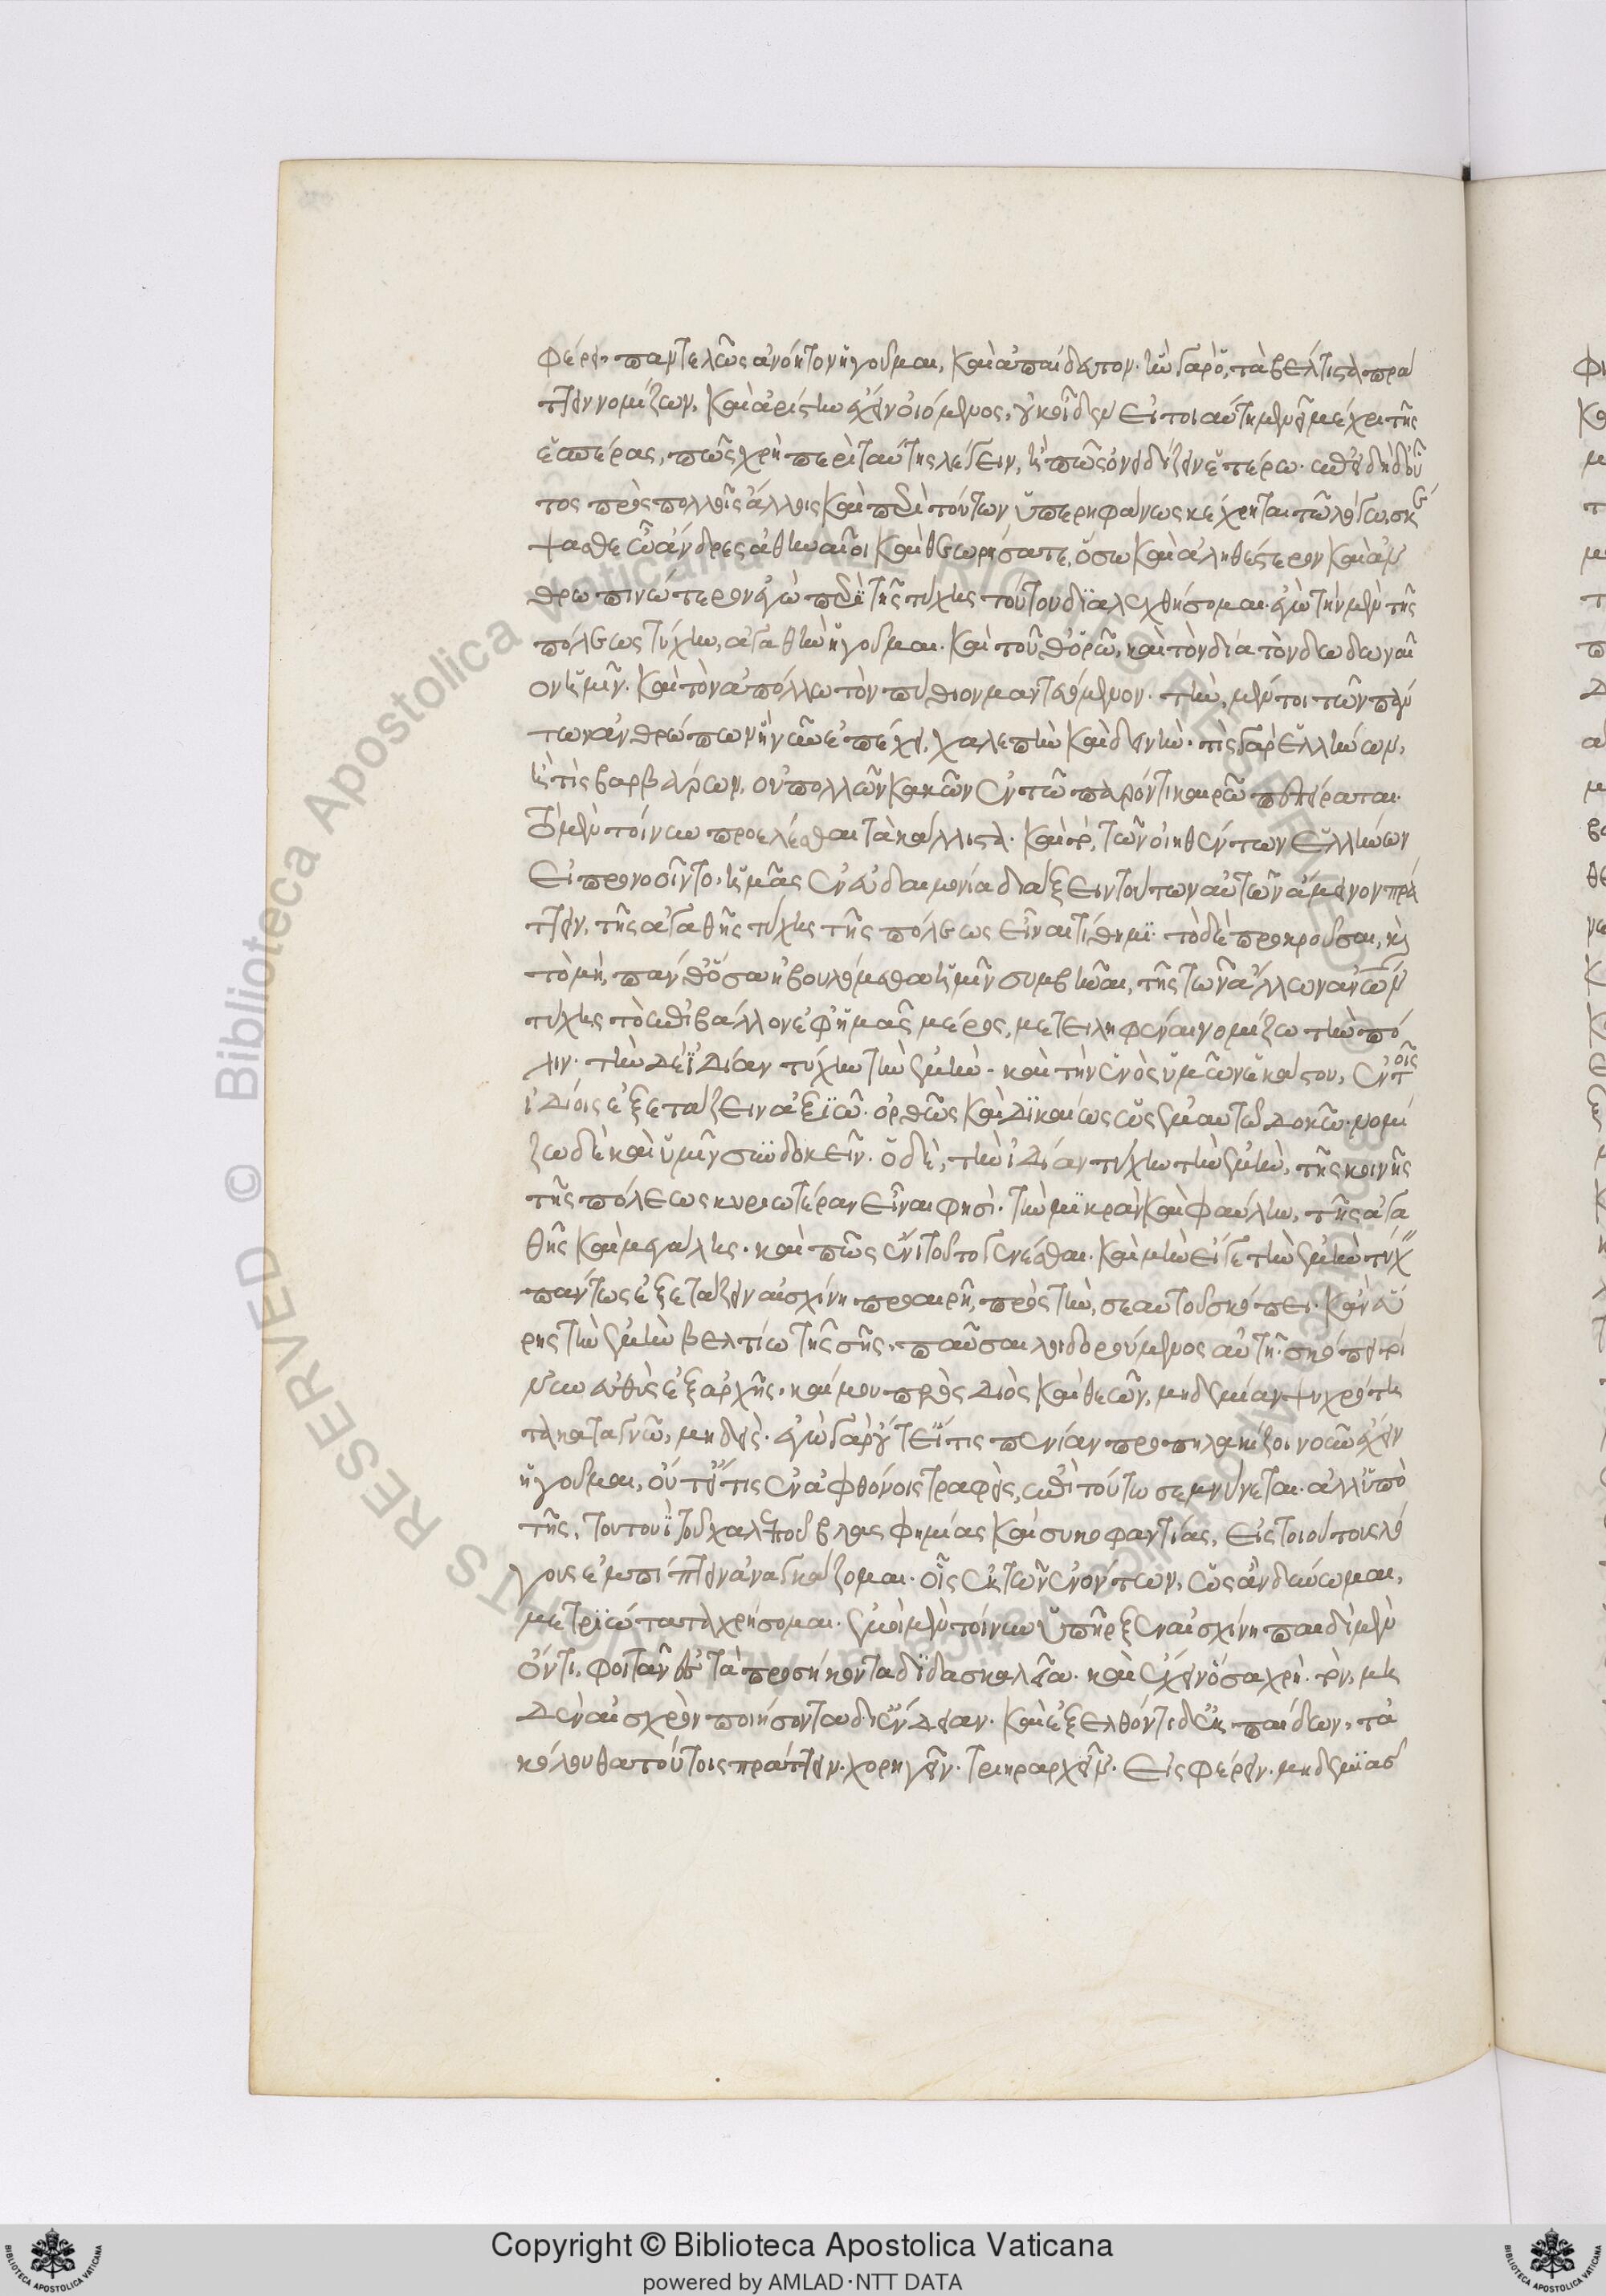 φέρει, παντελῶς ἀνόητον ἡγοῦμαι, καὶ ἀπαίδευτον. ἣν γὰρ ὁ, τὰ βέλτιστα πρα
ττειν νομίζων, καὶ ἀρίστην ἔχειν οἰόμενος, οὐκ οἶδεν εἰ τοιαύτη μενεῖ μέχρι τῆς
ἑσπέρας, πῶς χρὴ περὶ ταύτης λέγειν, ἢ πῶς ὀνειδίζειν ἑτέρω. ἐπειδὴ δ' οὗ
τος πρὸς πολλοῖς ἄλλοις καὶ περὶ τούτων ὑπερηφάνως κέχρηται τῶ λόγω, σκέ
ψασθε ὦ ἄνδρες ἀθηναῖοι καὶ θεωρήσατε, ὅσω καὶ ἀληθέστερον καὶ ἀν
θρωπινώτερον ἐγὼ περὶ τῆς τύχης τούτου διαλεχθήσομαι. ἐγὼ τὴν μὲν τῆς
πόλεως τύχην, ἀγαθὴν ἡγοῦμαι. καὶ τοῦθ' ὁρῶ, καὶ τὸν δία τὸν δωδωναῖ
ον ἡμῖν. καὶ τὸν ἀπόλλω τὸν πύθιον μαντευόμενον. τὴν, μέντοι τῶν πάν
των ἀνθρώπων ἣ νῦν ἐπέχει, χαλεπὴν καὶ δεινὴν. τίς γὰρ ἑλλήνων,
ἢ τίς βαρβάρων, οὐ πολλῶν κακῶν ἐν τῶ παρόντι καιρῶ πεπείραται.
τὸ μὲν τοίνυν προελέσθαι τὰ κάλλιστα. καὶ τὸ, τῶν οἰηθέντων ἑλλήνων
εἰ πρόοιντο, ἡμᾶς ἐν εὐδαιμονία διάξειν τούτων αὐτῶν ἄμεινον πρά
ττειν, τῆς ἀγαθῆς τύχης τῆς πόλεως εἶναι τίθημι. τὸ δὲ προσκροῦσαι, καὶ
τὸ μὴ, πάνθ' ὅσα ἠβουλόμεθα ἡμῖν συμβῆναι, τῆς τῶν ἄλλων ἀνων
τύχης τὸ ἐπιβάλλον ἐφ' ἡμᾶς μέρος, μετειληφέναι νομίζω τὴν πό
λιν. τὴν δὲ ἰδίαν τύχην τὴν ἐμὴν. καὶ τὴν ἑνὸς ὑμῶν ἑκάστου, ἐν τοῖς
ἰδίοις ἐξετάζειν ἀξιῶ. ὀρθῶς καὶ δικαίως ὡς ἐμαυτῶ δοκῶ. νομί
ζω δὲ καὶ ὑμῖν συνδοκεῖν. ὁ δὲ, τὴν ἰδίαν τύχην τὴν ἐμὴν, τῆς κοινῆς
τῆς πόλεως κυριωτέραν εἶναι φησὶ. τὴν μικρὰν καὶ φαύλην, τῆς ἀγα
θῆς καὶ μεγάλης. καὶ πῶς ἔνι τοῦτο γενέσθαι. καὶ μὴν εἴγε τὴν ἐμὴν τύχ
πάντως ἐξετάζειν αἰσχίνη προαιρῆ, πρὸς τὴν, σεαυτοῦ σκόπει. κἂν εὕ
ρης τὴν ἐμὴν βελτίω τῆς σῆς, παῦσαι λοιδορούμενος αὐτῆ. σκόπει τοί
νυν εὐθὺς ἐξ ἀρχῆς. καί μου πρὸς διὸς καὶ θεῶν, μηδεμίαν ψυχρότη
τα καταγνῶ, μηδείς. ἐγὼ γὰρ οὔτ' εἴ τις πενίαν προπηλακίζοι νοῦν ἔχειν
ἡγοῦμαι, οὔτ' εἴ τις ἐν ἀφθόνοις τραφεὶς, ἐπὶ τούτω σεμνύνεται. ἀλλ' ὑπὸ
τῆς, τουτουῒ τοῦ χαλεποῦ βλασφημίας καὶ συκοφαντίας, εἰς τοιούτους λό
γους ἐμπίπτειν ἀναγκάζομαι. οἷς ἐκ τῶν ἐνόντων, ὡς ἂν δύνωμαι,
μετριώτατα χρήσομαι. ἐμοὶ μὲν τοίνυν ὑπῆρξεν αἰσχίνη παιδὶ μὲν
ὄντι, φοιτᾶν εἰς τὰ προσήκοντα διδασκαλεῖα. καὶ ἔχειν ὅσα χρὴ. τὸν, μη
δὲν αἰσχρὸν ποιήσοντα δι' ἔνδειαν. καὶ ἐξελθόντι δ' ἐκ παίδων, τὰ
κόλουθα τούτοις πράττειν. χορηγεῖν. τριηραρχεῖν. εἰσφέρειν. μηδεμιᾶς
Copyright © Biblioteca Apostolica Vaticana
powered by AMLAD·NTT DATA